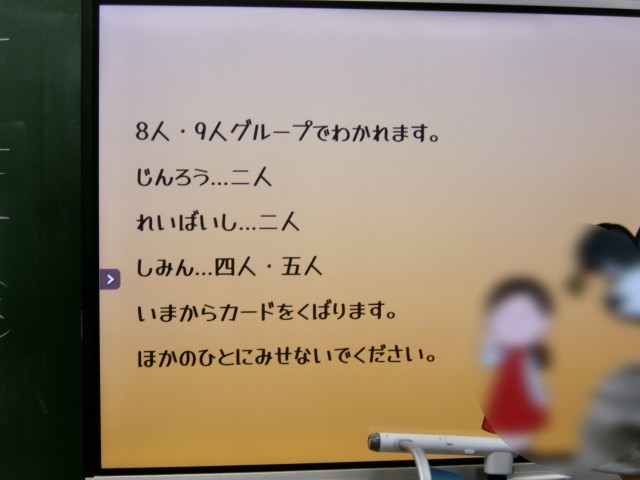 8人・9人グループでわかれます。
じんろう...二人
れいばいし...二人
しみん...四人・五人
いまからカードをくばります。
ほかのひとにみせないでください。